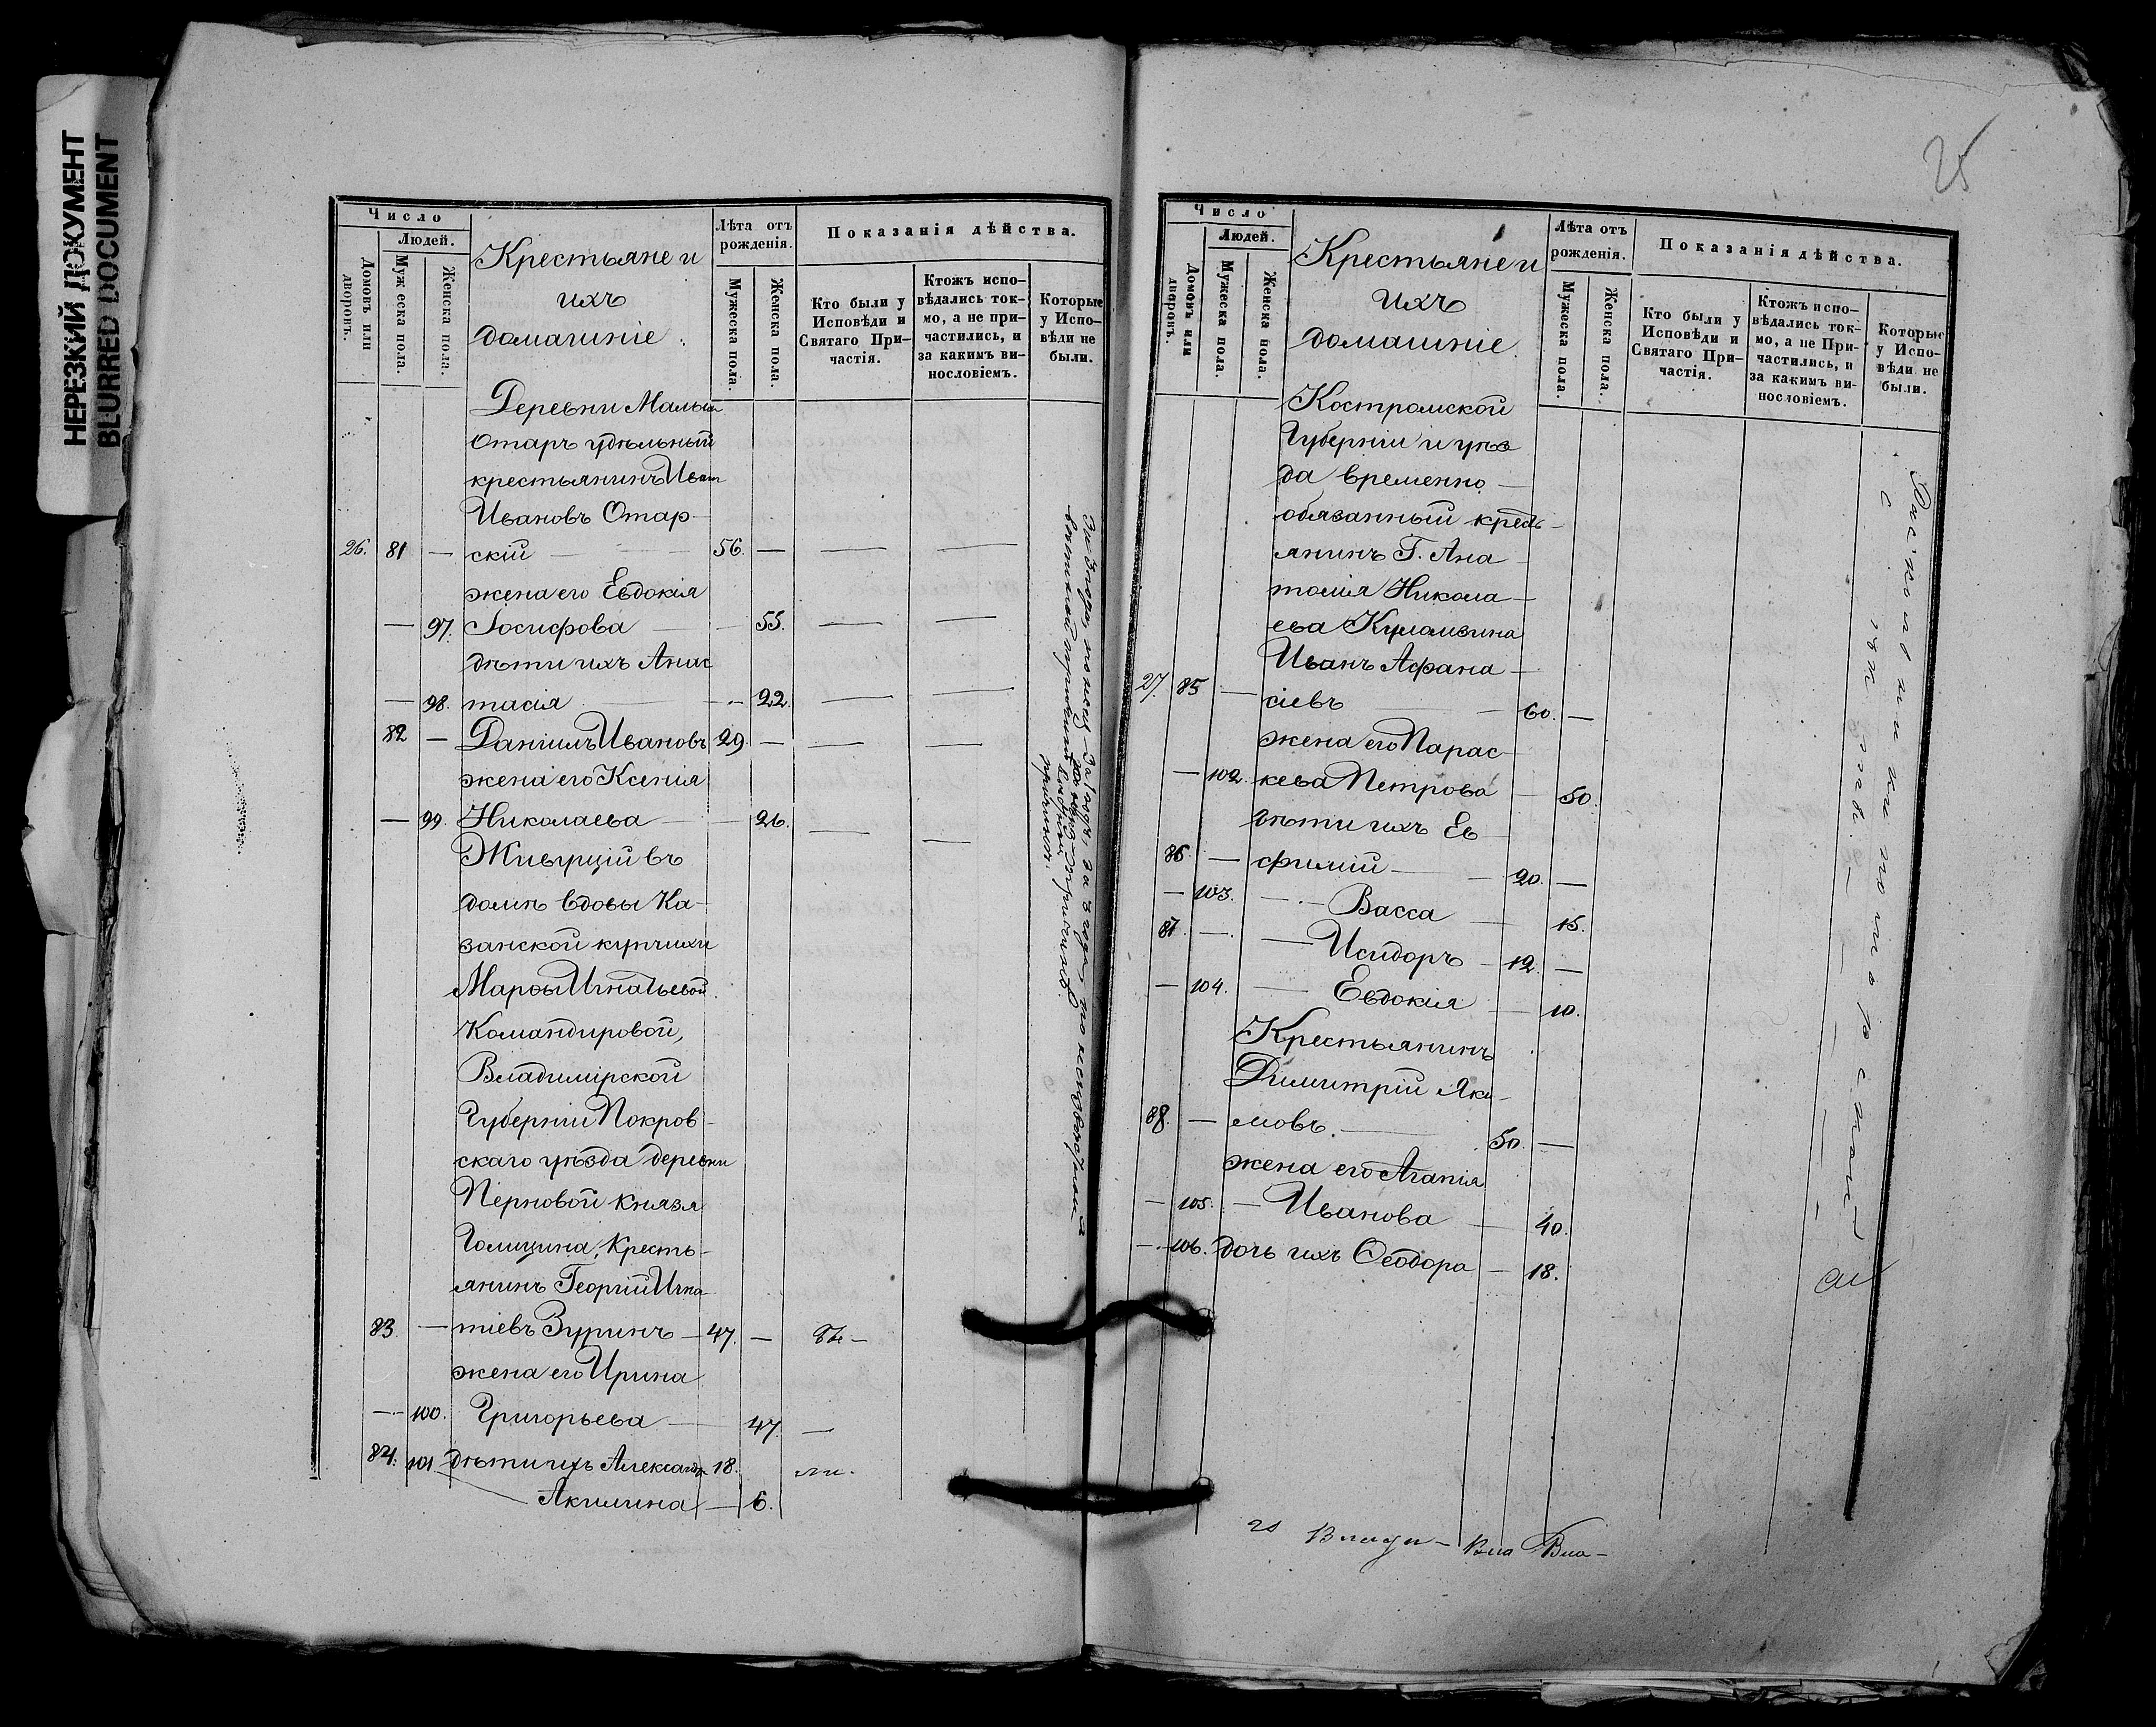 НЕРЕЗКИЙ ДОКУМЕНТ
BLURRED DOCUMENT
Число
Людей.
Домовъ или дворовъ.
Мужеска пола.
Женска пола.
Крестьяне и
ихъ
домашніе.
Лѣта отъ рожденія.
Мужеска пола.
Женска пола.
Показанія дѣйства.
Кто были у Исповѣди и Святаго При-частія.
Ктожъ испо-вѣдались ток-мо, а не при-частились, и за какимъ ви-нословіемъ.
Которые у Испо-вѣди не были.
Деревни Малыхъ
Отаръ удѣльный
крестьянинъ Иванъ
Ивановъ Отар-
26. 81 — скій — 56. —
жена его Евдокія
— 97. Іосифова — 55.
дѣти ихъ Анас
— 98. тасія — 22.
82 — Даніилъ Ивановъ 29. —
жена его Ксенія
— 99. Николаева — 26.
Живущій въ
домѣ вдовы Ка-
занской купчихи
Марѳы Игнатьевой
Командировой,
Владимірской
Губерніи Покров-
скаго уѣзда деревни
Перновой Князя
Голицина, Кресть-
янинъ Георгій Игна-
83. — тіевъ Зуринъ — 47. —
жена его Ирина
— 100. Григорьева — 47.
84. 101. дѣти ихъ Александръ 18.
— Акилина — 6.
25
Число
Людей.
Домовъ или дворовъ.
Мужеска пола.
Женска пола.
Крестьяне и
ихъ
домашніе.
Лѣта отъ рожденія.
Мужеска пола.
Женска пола.
Показанія дѣйства.
Кто были у Исповѣди и Святаго При-частія.
Ктожъ испо-вѣдались ток-мо, а не При-частились, и за какимъ ви-нословіемъ.
Которые у Испо-вѣди не были.
Костромской
Губерніи и уѣз
да временно-
обязанный кресть-
янинъ Г. Ана-
толія Никола-
ева Куломзина
Иванъ Афана-
27. 85 — сіевъ — 60. —
жена его Парас-
— 102. кева Петрова — 50.
дѣти ихъ Ев-
86. — фимій — 20. —
— 103. — Васса — 15.
87. — — Исидоръ — 12. —
— 104. — Евдокія — 10.
Крестьянинъ
Димитрій Яки-
88. — мовъ. — 50. —
жена его Агапія
— 105. — Иванова — 40.
— 106. дочь ихъ Ѳеодора — 18.